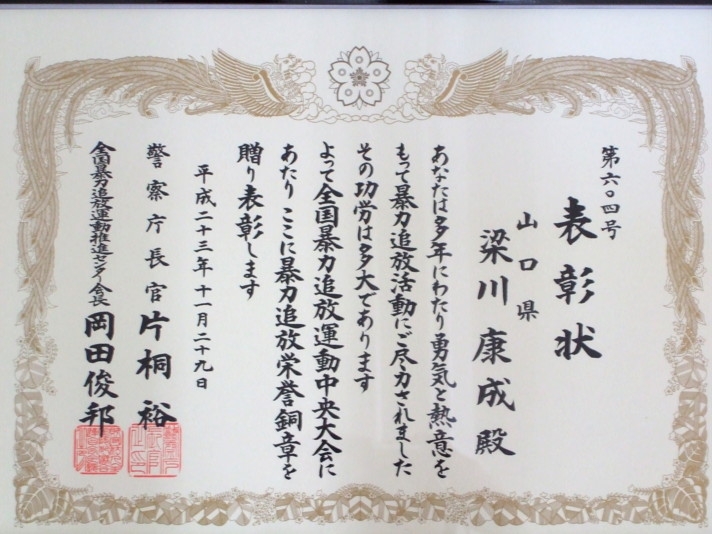 第六〇四号
表彰状
山口県
梁川康成殿
あなたは多年にわたり勇気と熱意を
もって暴力追放活動にご尽力されました
その功労は多大であります
よって全国暴力追放運動中央大会に
あたりここに暴力追放栄誉銅章を
贈り表彰します
平成二十三年十一月二十九日
警察庁長官片桐裕
全国暴力追放運動推進センター会長岡田俊邦